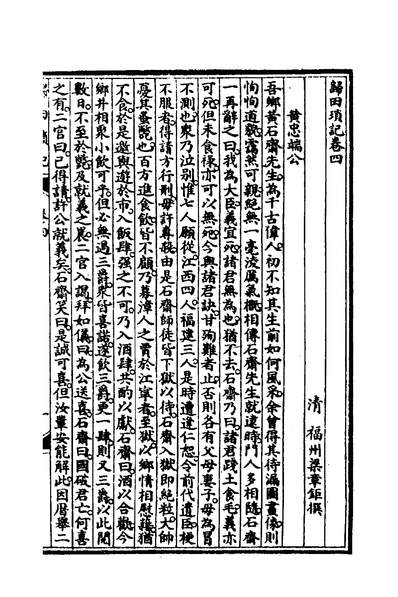 歸田瑣記卷四
清　福州梁章鉅撰
黃忠端公
吾鄉黃石齋先生為千古偉人初不知其生前如何風采余曾得其待漏圖畫像則
恂恂道貌靄然可親絕無一毫淩厲氣概相傳石齋先生就逮時門人多相隨石齋
一再解之曰我為大臣義宜死諸君無為也猶不去石齋乃曰諸君踐土食毛義亦
可死但未食祿亦可以無死今與諸君訣甘殉難者止否則各有父母妻子毋為冒
不測也眾乃泣別惟七人願從江西四人福建三人是時遭逢仁恕令前代遺臣梗
不服者得請方行刑毋許專殺由是石齋師徒皆下獄以待石齋入獄即絕粒大帥
憂其蚤斃也百方進食飲皆不顧乃募漳人之賈於江寧者至獄以鄉情相慰藉猶
不食於是邀與遊於市入飯肆強之不可乃入酒肆共酌以獻石齋曰酒以合歡今
鄉井相聚小飲可乎但必無過三爵眾皆喜諾遂飲三爵更一肆則又三爵以此閱
數日不至於斃及就義之晨二官入謁拜如儀曰為公送喜石齋曰國破君亡何喜
之有二官曰已得請許公就義矣石齋笑曰是誠可喜但汝輩安能解此因曆舉二